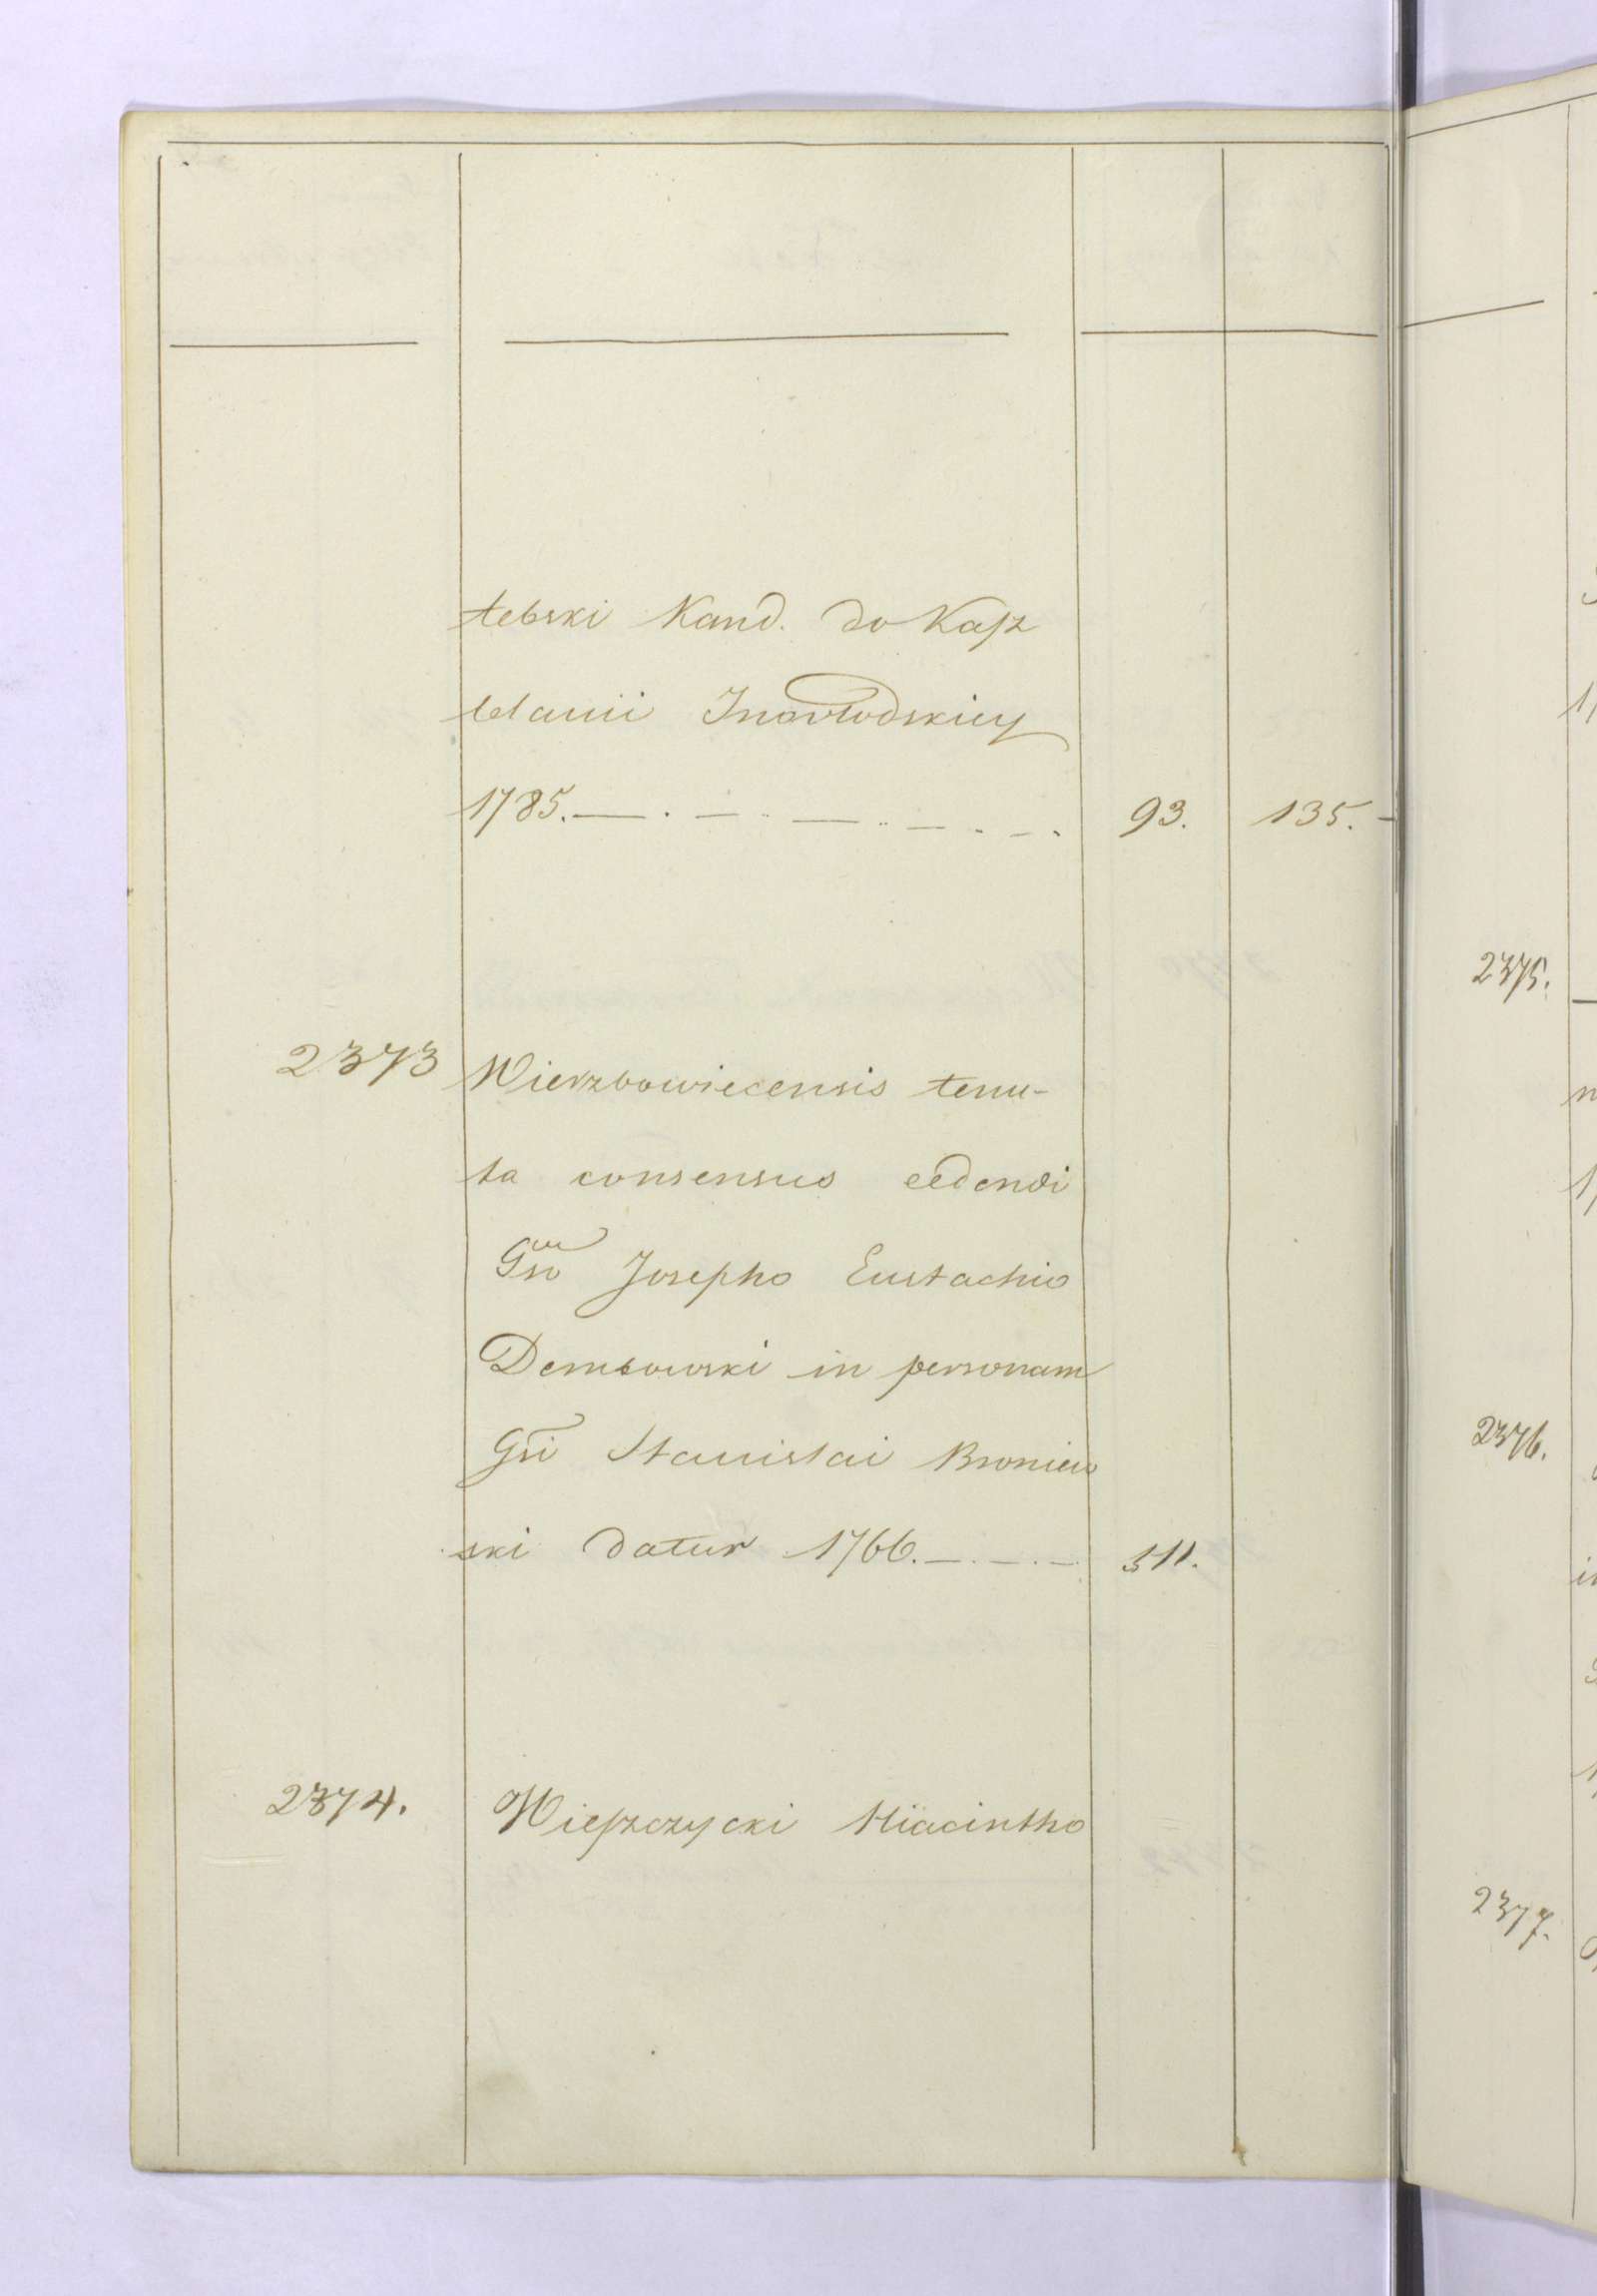 tebski Kand. do Kasz
telanii Inowłodskiey
1785. — . — . — .. — . — . 93. 135. -
2373 Wierzbowiecensis tenu-
ta consensus cedendi
Gso Josepho Eustachio
Dembowski in personam
Gsi Stanislai Broniew
ski datur 1766. — . — . — 311.
2374. Wieszczycki Hiacintho
2375.
2376.
2377.